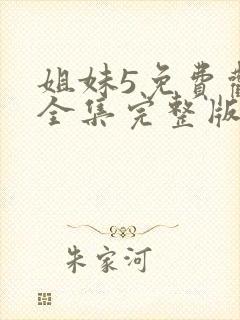 姐妹5免費
全集完整版
朱家河